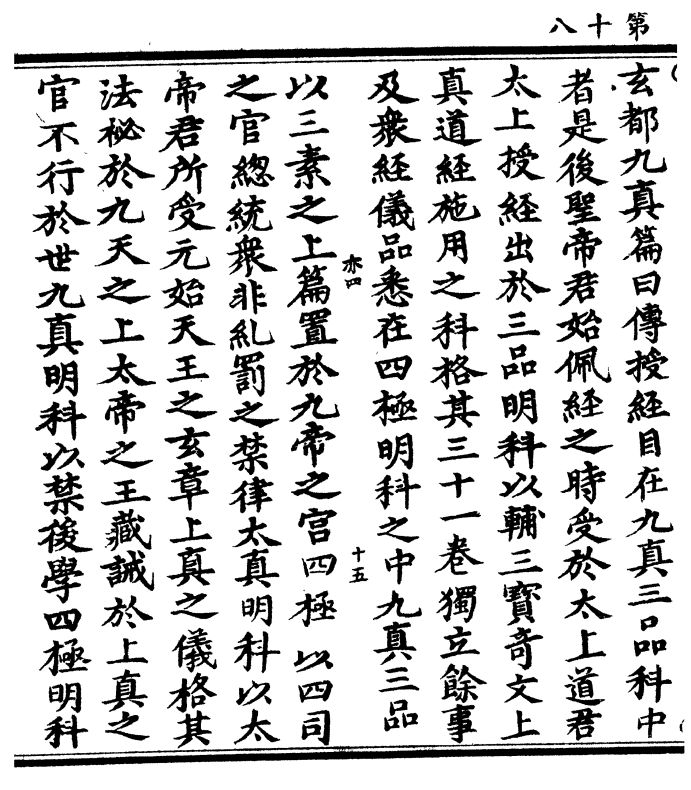 第十八
玄都九真篇曰傳授經目在九真三品科中
者是後聖帝君始佩經之時受於太上道君
太上授經出於三品明科以輔三寶奇文上
真道經施用之科格其三十一卷獨立餘事
及衆經儀品悉在四極明科之中九真三品
亦四
十五
以三素之上篇置於九帝之宫四極以四司
之官總統衆非糺罰之禁律太真明科以太
帝君所受元始天王之玄章上真之儀格其
法祕於九天之上太帝之王藏誡於上真之
官不行於世九真明科以禁後學四極明科